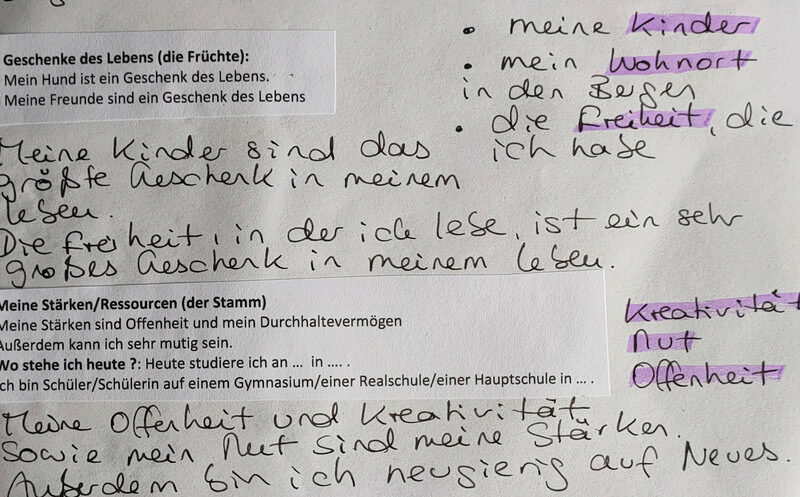 Geschenke des Lebens (die Früchte):
Mein Hund ist ein Geschenk des Lebens.
Meine Freunde sind ein Geschenk des Lebens
• meine Kinder
• mein Wohnort
in den Bergen
• die Freiheit, die
ich habe
Meine Kinder sind das
größte Geschenk in meinem
Leben.
Die Freiheit, in der ich lebe, ist ein sehr
großes Geschenk in meinem Leben.
Meine Stärken/Ressourcen (der Stamm)
Meine Stärken sind Offenheit und mein Durchhaltevermögen
Außerdem kann ich sehr mutig sein.
Wo stehe ich heute ?: Heute studiere ich an ... in .... .
Ich bin Schüler/Schülerin auf einem Gymnasium/einer Realschule/einer Hauptschule in ... .
Kreativität
Mut
Offenheit
Meine Offenheit und Kreativität
sowie mein Mut sind meine Stärken.
Außerdem bin ich neugierig auf Neues.